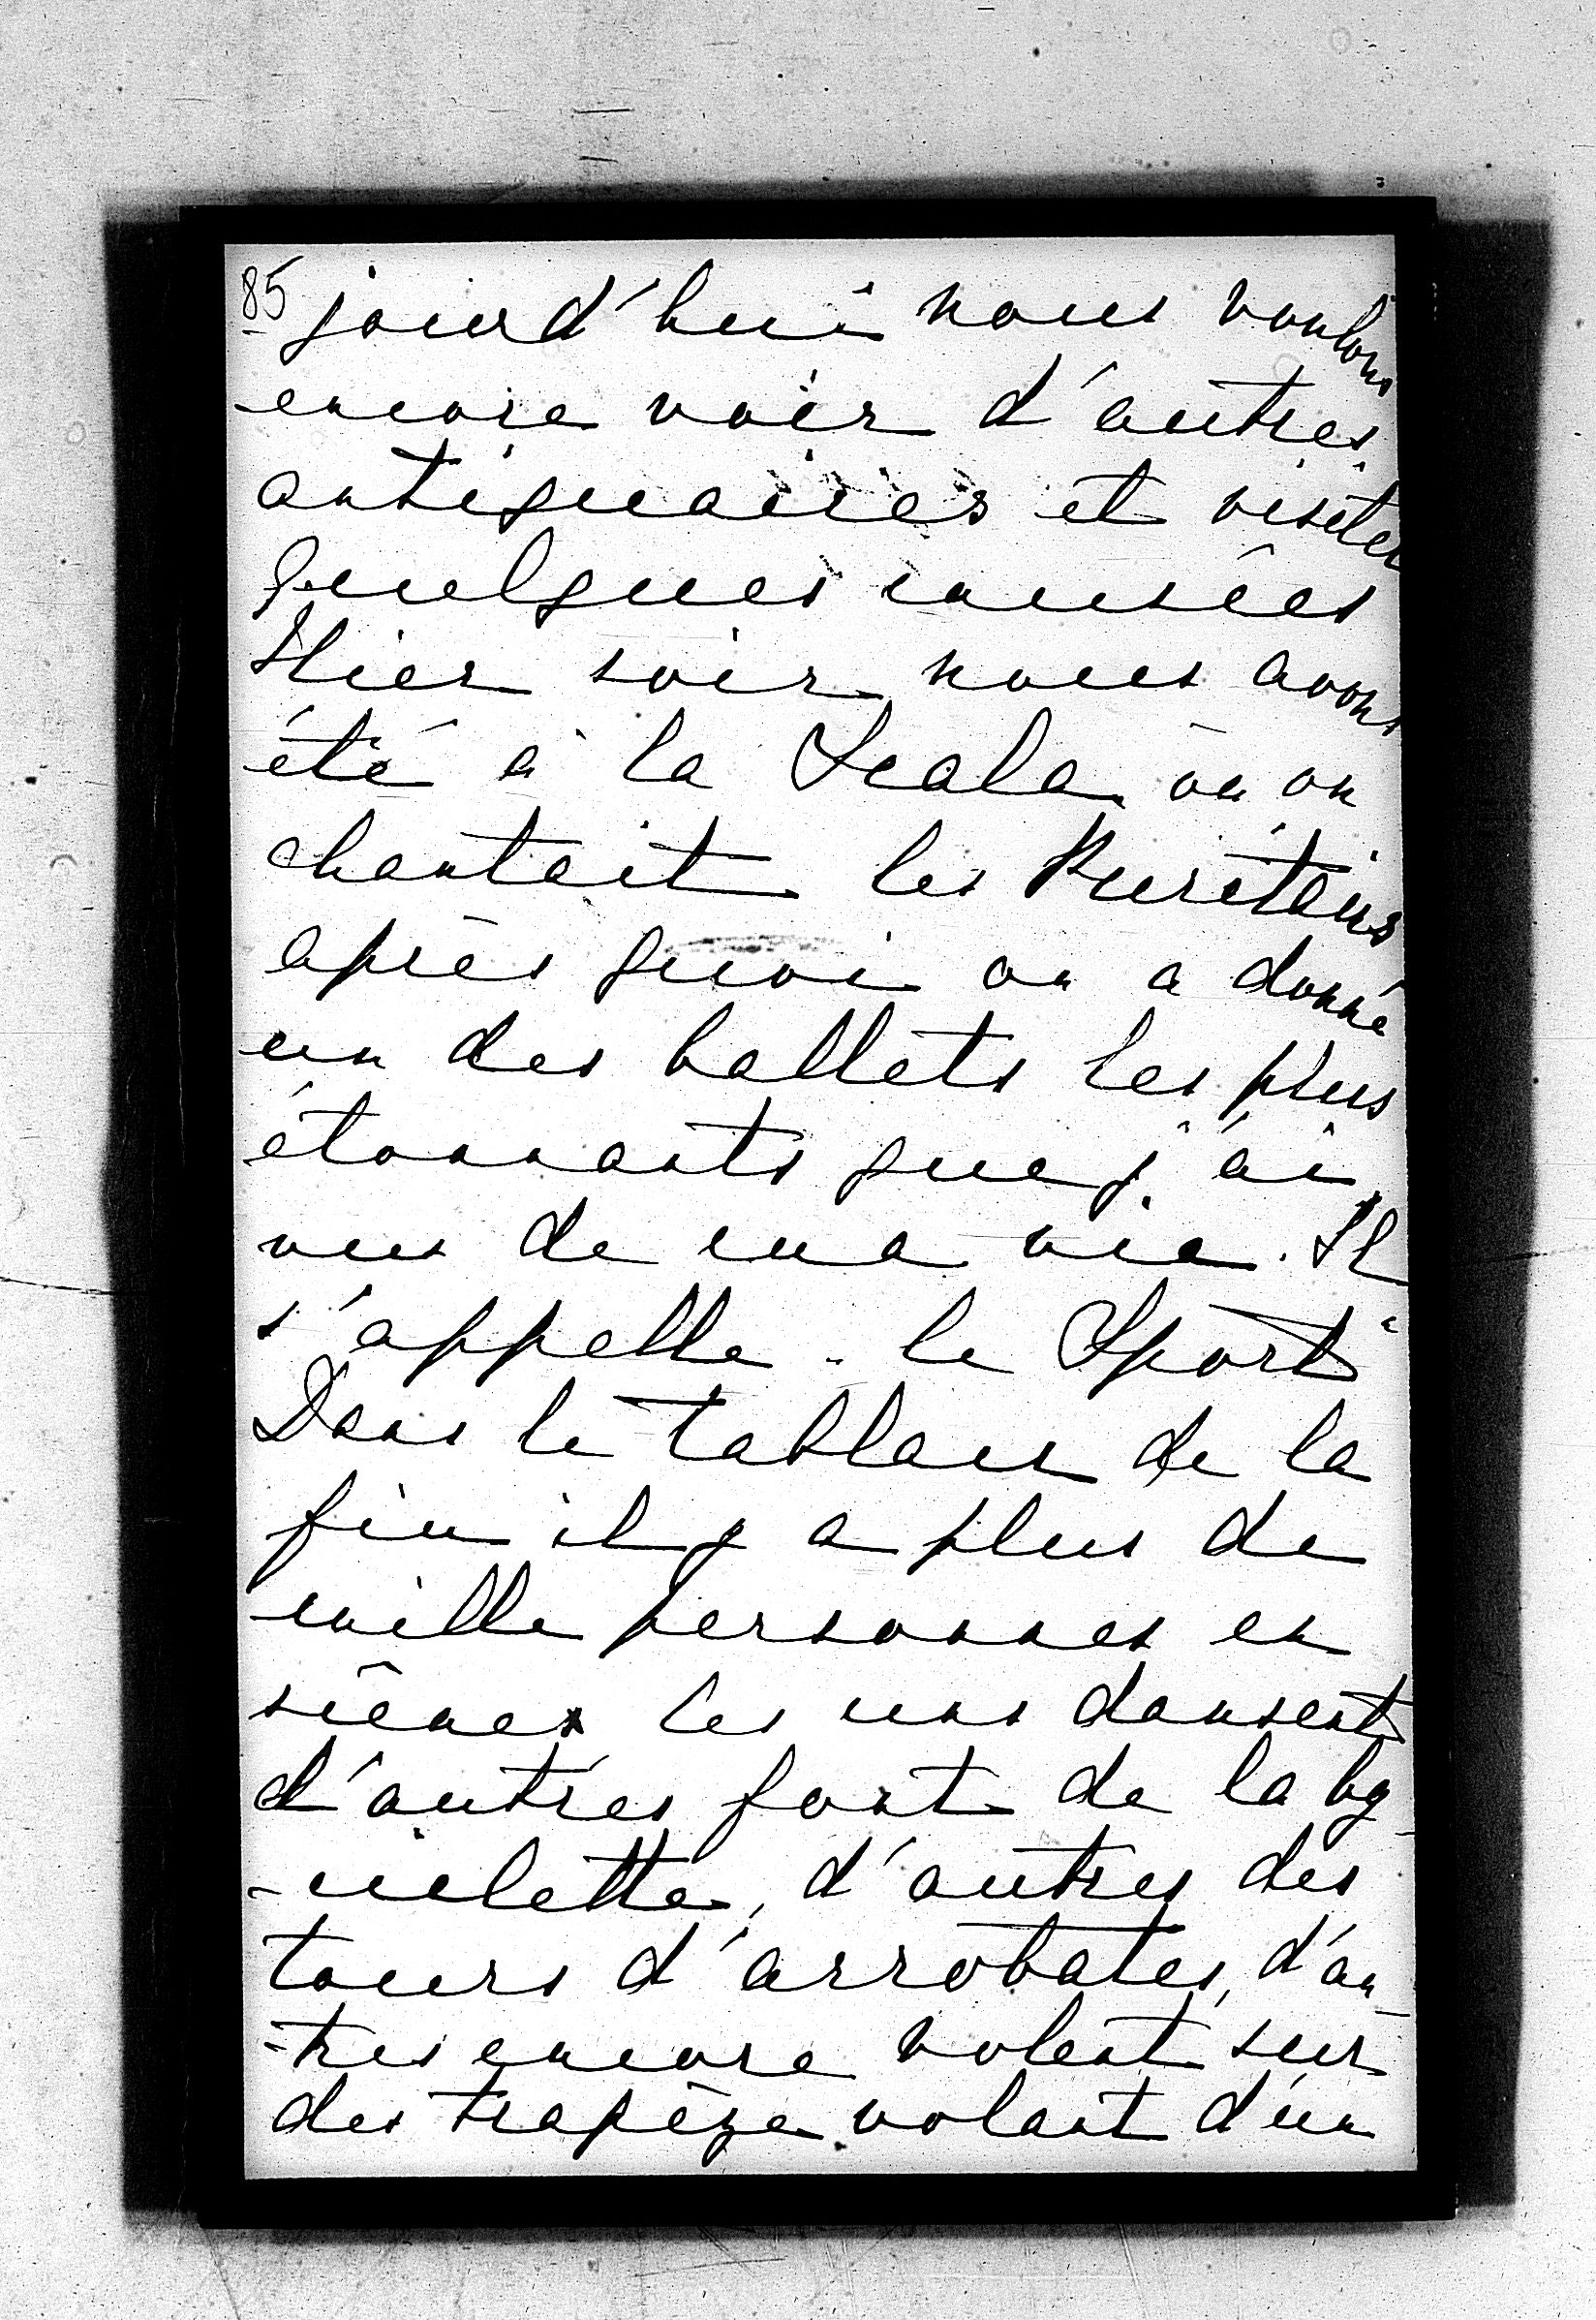 85
jourd'hui nous voulons
encore voir d'autres
antiquaires et visiter
quelques musées
Hier soir nous avons
été à la Scala où on
chantait les Puritains
après quoi on a donné
un des ballets les plus
étonnants que j'ai
vus de ma vie. Il
s'appelle "le Sport"
Dans le tableau de la
fin il y a plus de
mille personnes en
scène les uns dansent
d'autres font de la by
-ciclette, d'autres des
tours d'arrobates, d'au
-tres encore volent sur
des trapèze volant d'un